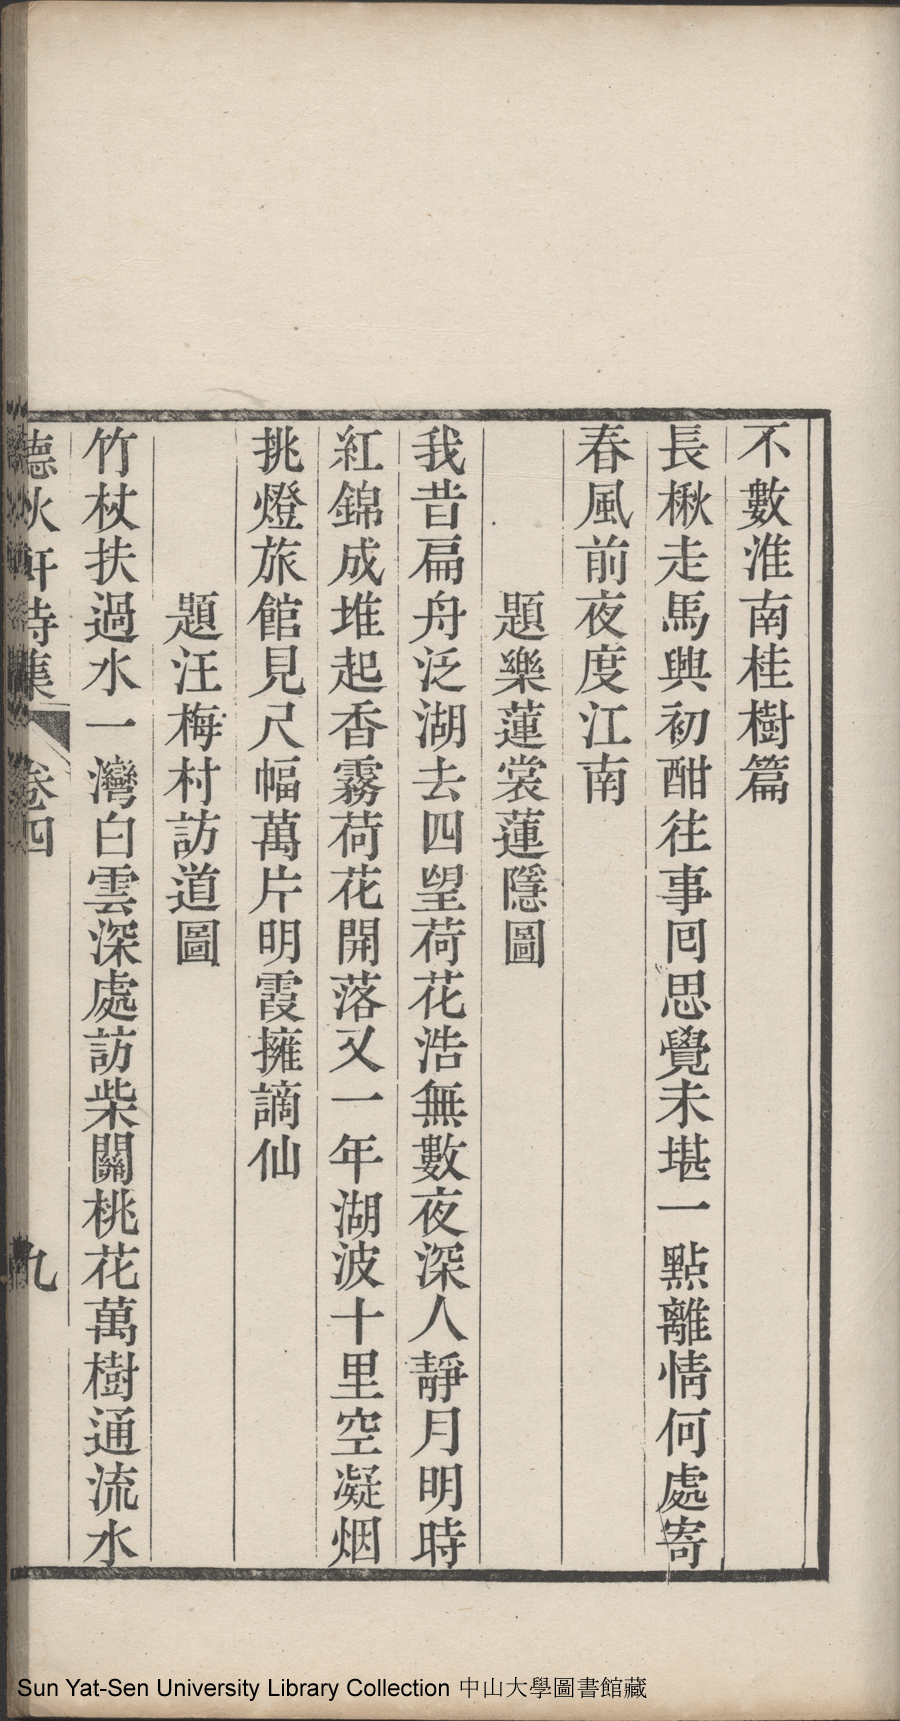 不數淮南桂樹篇
長楸走馬興初酣往事囘思覺未堪一點離情何處寄
春風前夜度江南
題樂蓮裳蓮隱圖
我昔扁舟泛湖去四望荷花浩無數夜深人靜月明時
紅錦成堆起香霧荷花開落又一年湖波十里空凝烟
挑燈旅館見尺幅萬片明霞擁謫仙
題汪梅村訪道圖
竹杖扶過水一灣白雲深處訪柴關桃花萬樹通流水
德水軒詩集 卷四 九
Sun Yat-Sen University Library Collection 中山大學圖書館藏